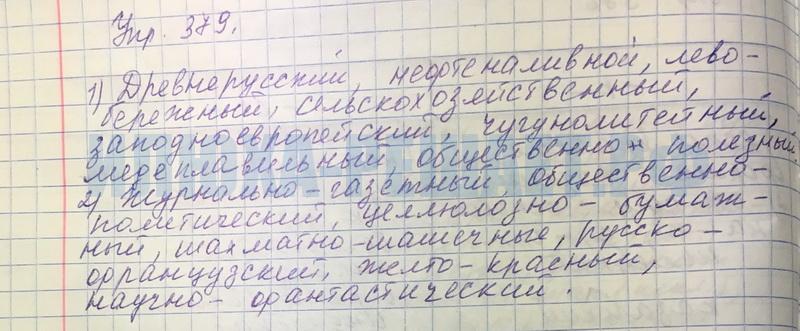 Упр. 379.
1) Древнерусский, нефтеналивной, лево-
бережный, сельскохозяйственный,
западноевропейский, чугунолитейный,
медеплавильный, общественно полезный.
2) Журнально-газетный, общественно-
политический, целлюлозно-бумаж-
ный, шахматно-шашечные, русско-
французский, желто-красный,
научно-фантастический.